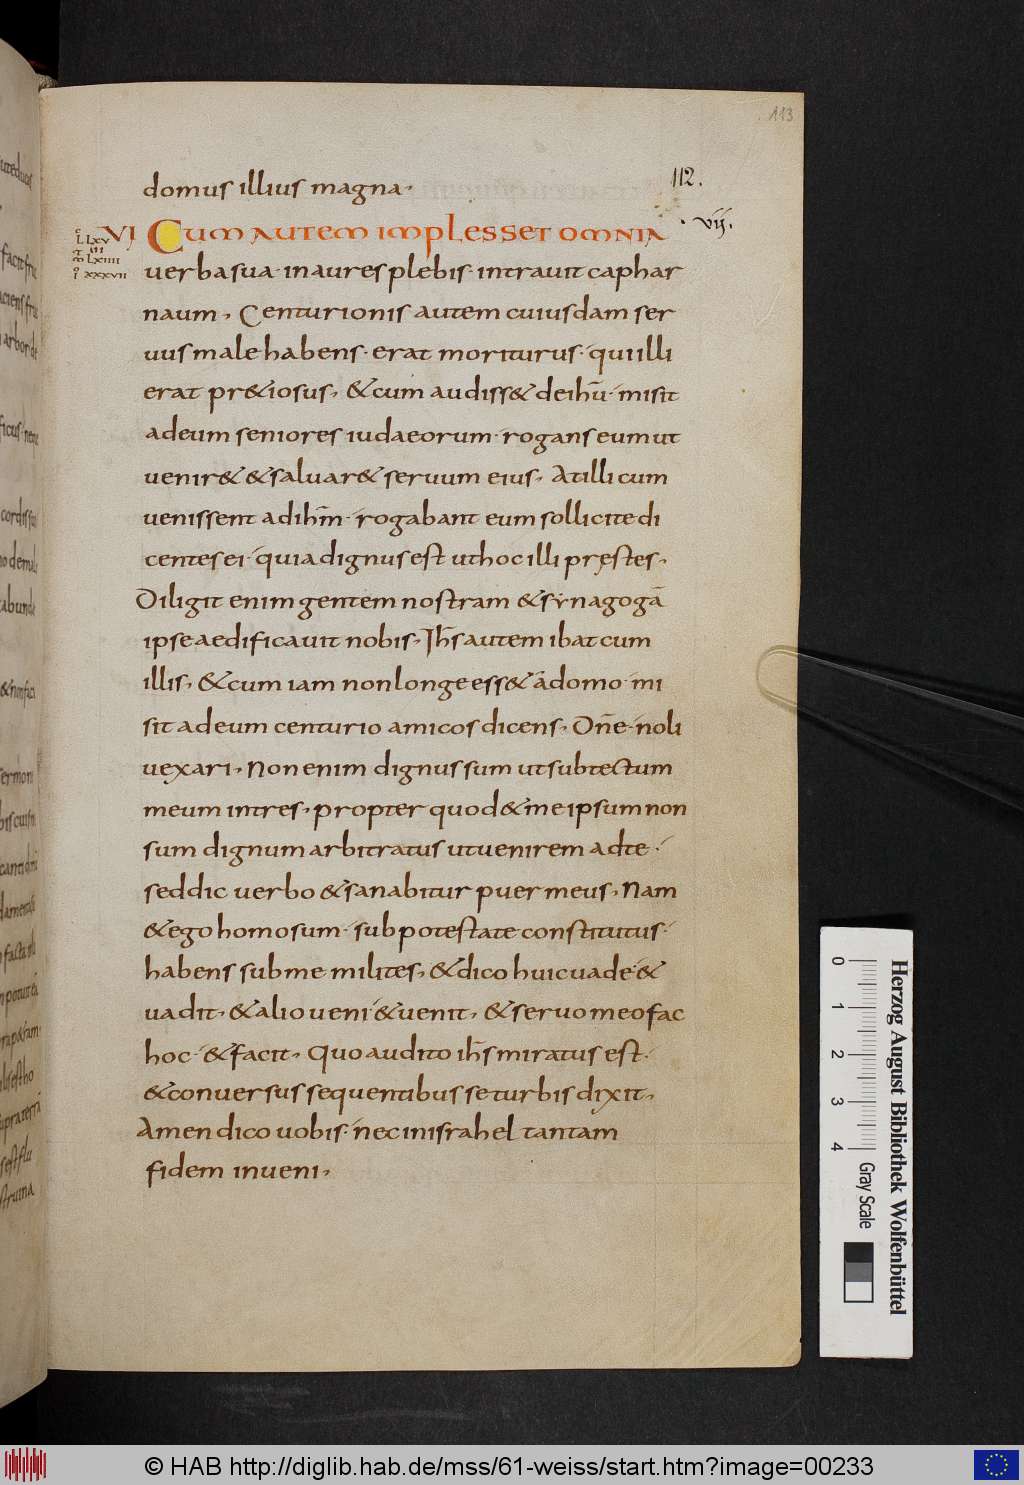 113
112.
domus illius magna·
VI CUM AUTEM IMPLESSET OMNIA · vij.
L LXV
III
M LXIIII
I XXXVII
verba sua· in aures plebis· intravit caphar
naum, Centurionis autem cuiusdam ser
uus male habens· erat moriturus· qui illi
erat pr&iosus, & cum audiss& de ihū· misit
ad eum seniores iudaeorum· rogans eum ut
uenir& & saluar& seruum eius, At illi cum
uenissent ad ihm̄· rogabant eum sollicite di
centes ei· quia dignus est ut hoc illi pręstes,
Diligit enim gentem nostram & synagogā
ipse aedificauit nobis, Ihs̄ autem ibat cum
illis, & cum iam non longe ess& a domo· mi
sit ad eum centurio amicos dicens, Dn̄e· noli
uexari, Non enim dignus sum ut sub tectum
meum intres, propter quod & me ipsum non
sum dignum arbitratus ut uenirem ad te·
sed dic uerbo & sanabitur puer meus, Nam
& ego homo sum· sub potestate constitutus·
habens sub me milites, & dico huic uade· &
uadit, & alio ueni & uenit, & seruo meo fac
hoc· & facit, Quo audito ihs̄ miratus est·
& conuersus sequentibus se turbis dixit,
Amen dico uobis· nec in israhel tantam
fidem inueni,
0 1 2 3 4
Gray Scale
Herzog August Bibliothek Wolfenbüttel
© HAB http://diglib.hab.de/mss/61-weiss/start.htm?image=00233